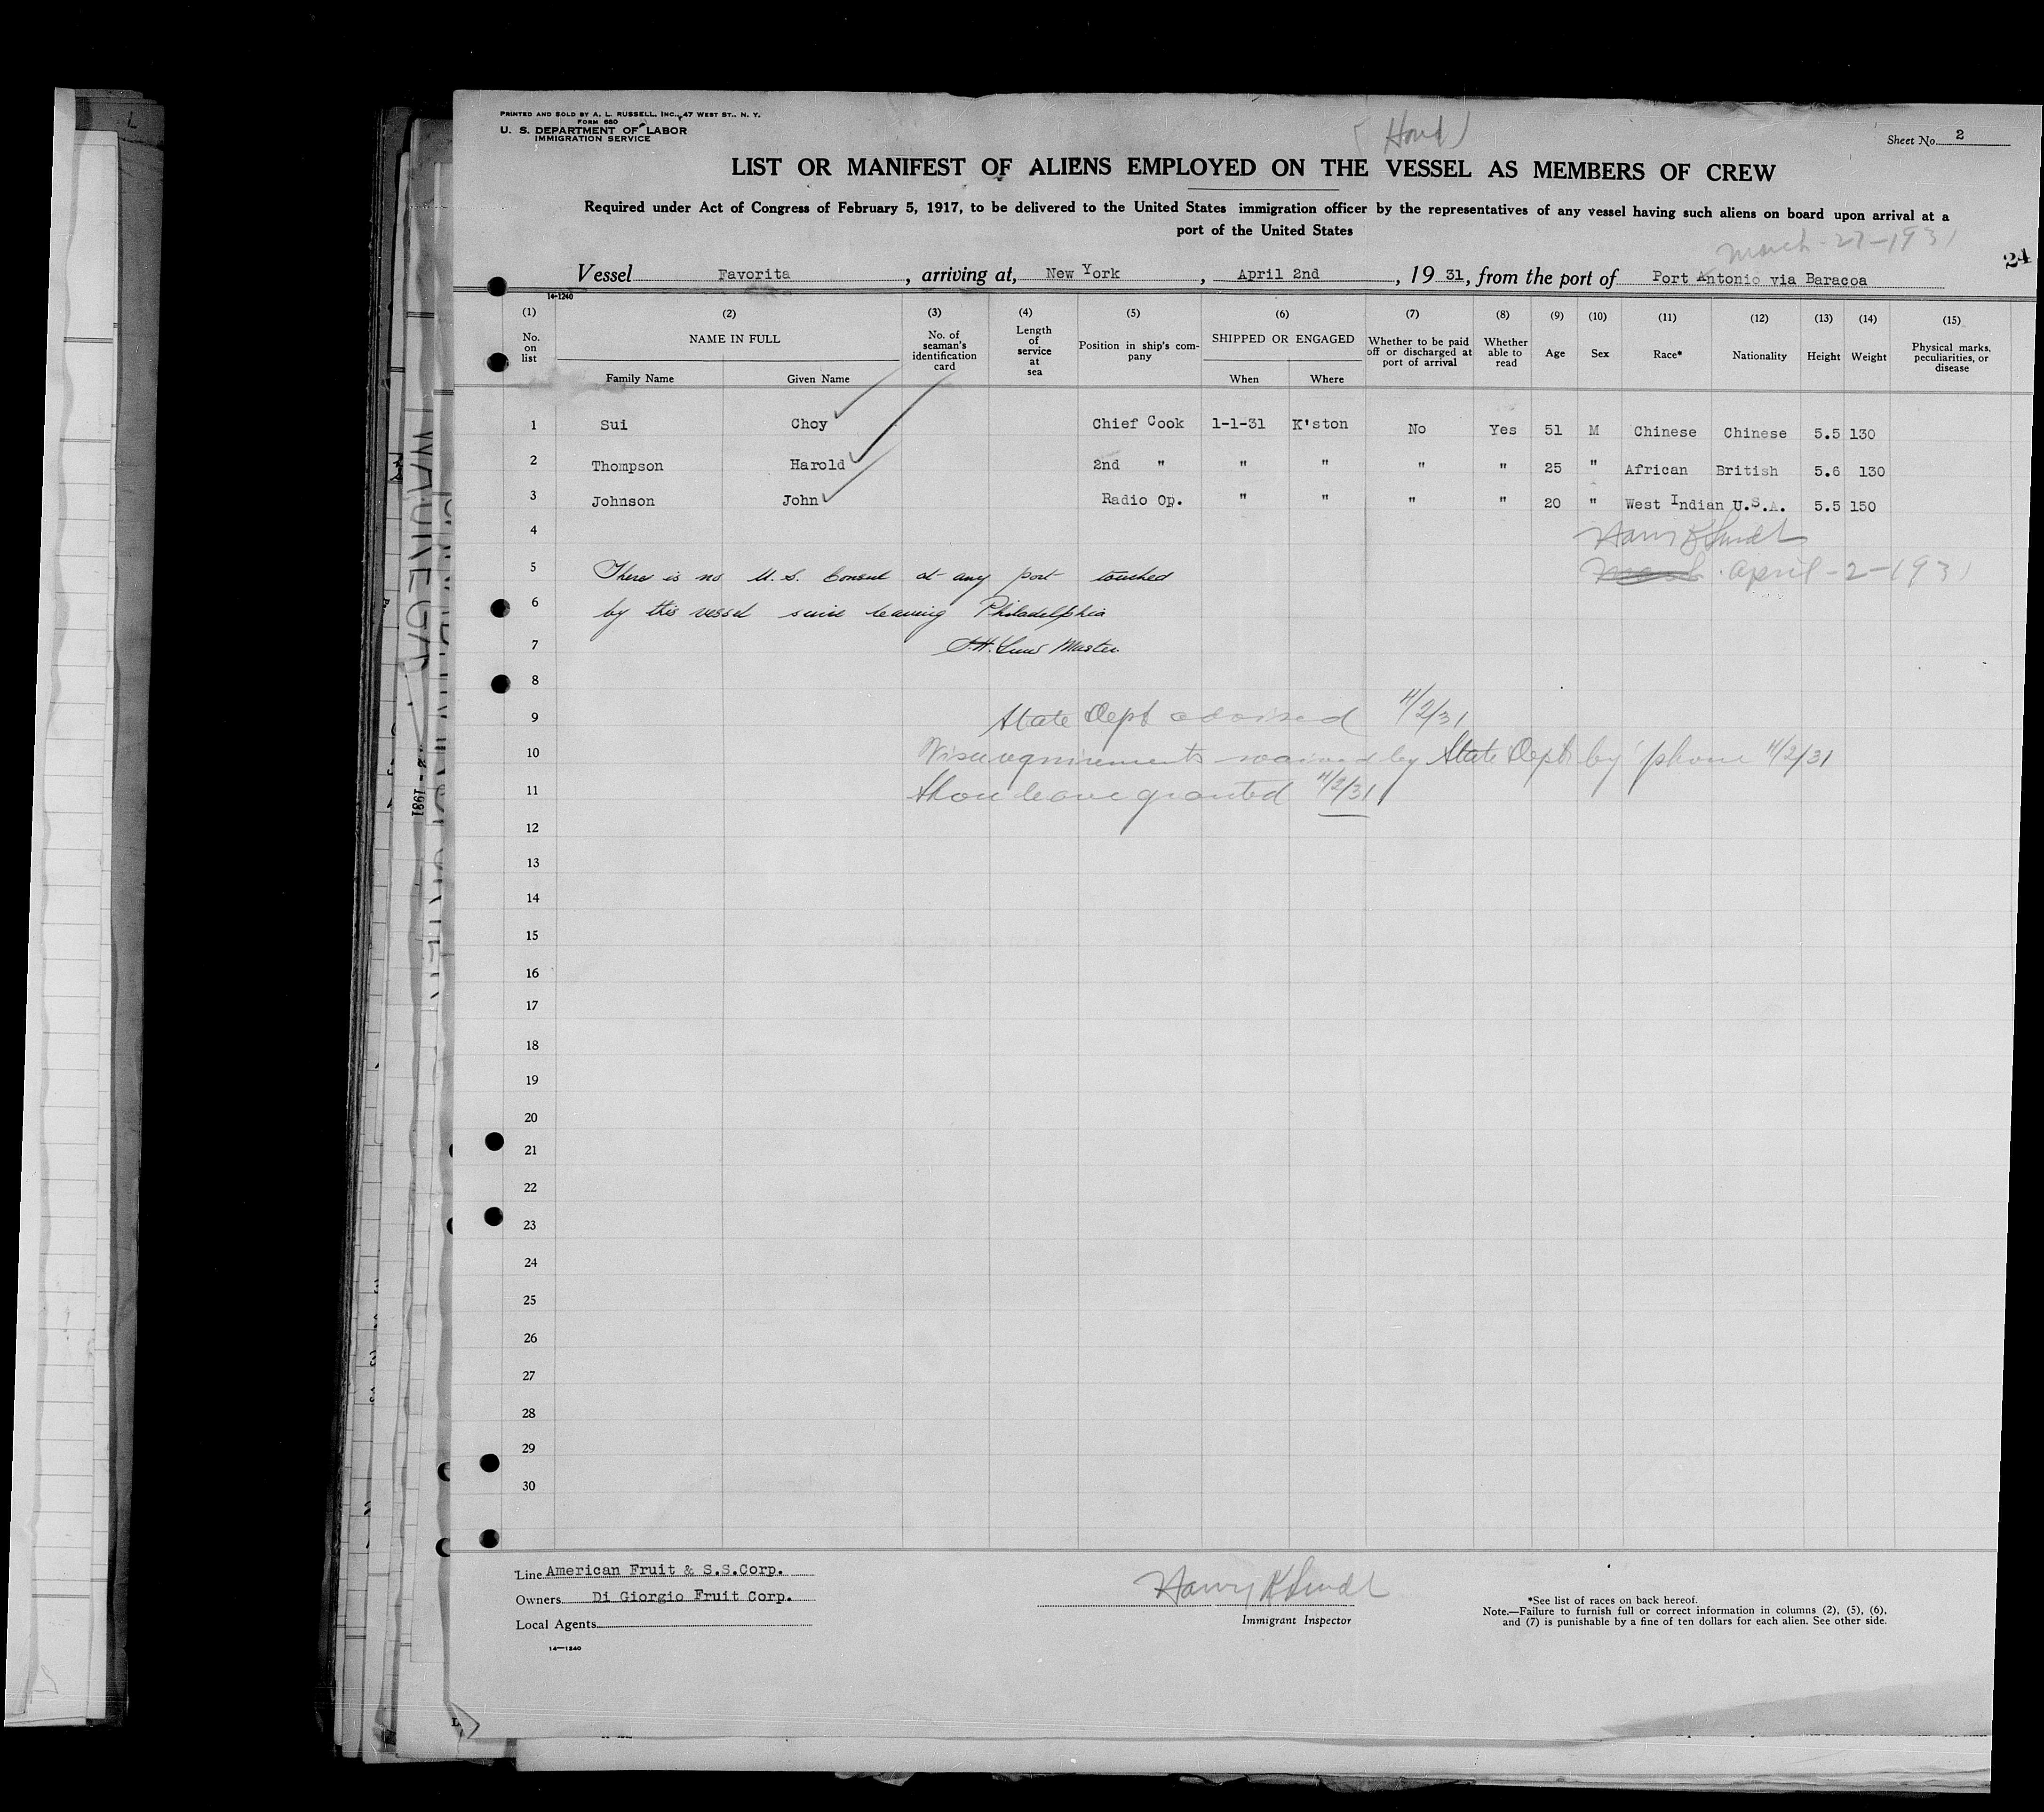 PRINTED AND SOLD BY A. L. RUSSELL, INC., 47 WEST ST., N. Y.
FORM 680
U. S. DEPARTMENT OF LABOR
IMMIGRATION SERVICE
(Hond)
Sheet No. 2
LIST OR MANIFEST OF ALIENS EMPLOYED ON THE VESSEL AS MEMBERS OF CREW
Required under Act of Congress of February 5, 1917, to be delivered to the United States immigration officer by the representatives of any vessel having such aliens on board upon arrival at a
port of the United States
March-27-1931
24
Vessel Favorita, arriving at, New York, April 2nd, 1931, from the port of Port Antonio via Baracoa
14-1240
(1) (2) (3) (4) (5) (6) (7) (8) (9) (10) (11) (12) (13) (14) (15)
No. on list NAME IN FULL Family Name Given Name No. of seaman's identification card Length of service at sea Position in ship's company SHIPPED OR ENGAGED When Where Whether to be paid off or discharged at port of arrival Whether able to read Age Sex Race* Nationality Height Weight Physical marks, peculiarities, or disease
1 Sui Choy Chief Cook 1-1-31 K'ston No Yes 51 M Chinese Chinese 5.5 130
2 Thompson Harold 2nd " " " " " 25 " African British 5.6 130
3 Johnson John Radio Op. " " " " 20 " West Indian U.S.A. 5.5 150
4
5 There is no U.S. Consul at any port touched
April-2-1931
6 by this vessel since leaving Philadelphia
7 Master
8
9 State Dept advised 4/2/31
10 Visa requirements waived by State Dept by 'phone 4/2/31
11 Shore leave granted 4/2/31
12
13
14
15
16
17
18
19
20
21
22
23
24
25
26
27
28
29
30
Line American Fruit & S.S.Corp.
Owners Di Giorgio Fruit Corp.
Local Agents
14-1240
Harry K
Immigrant Inspector
*See list of races on back hereof.
Note.—Failure to furnish full or correct information in columns (2), (5), (6),
and (7) is punishable by a fine of ten dollars for each alien. See other side.